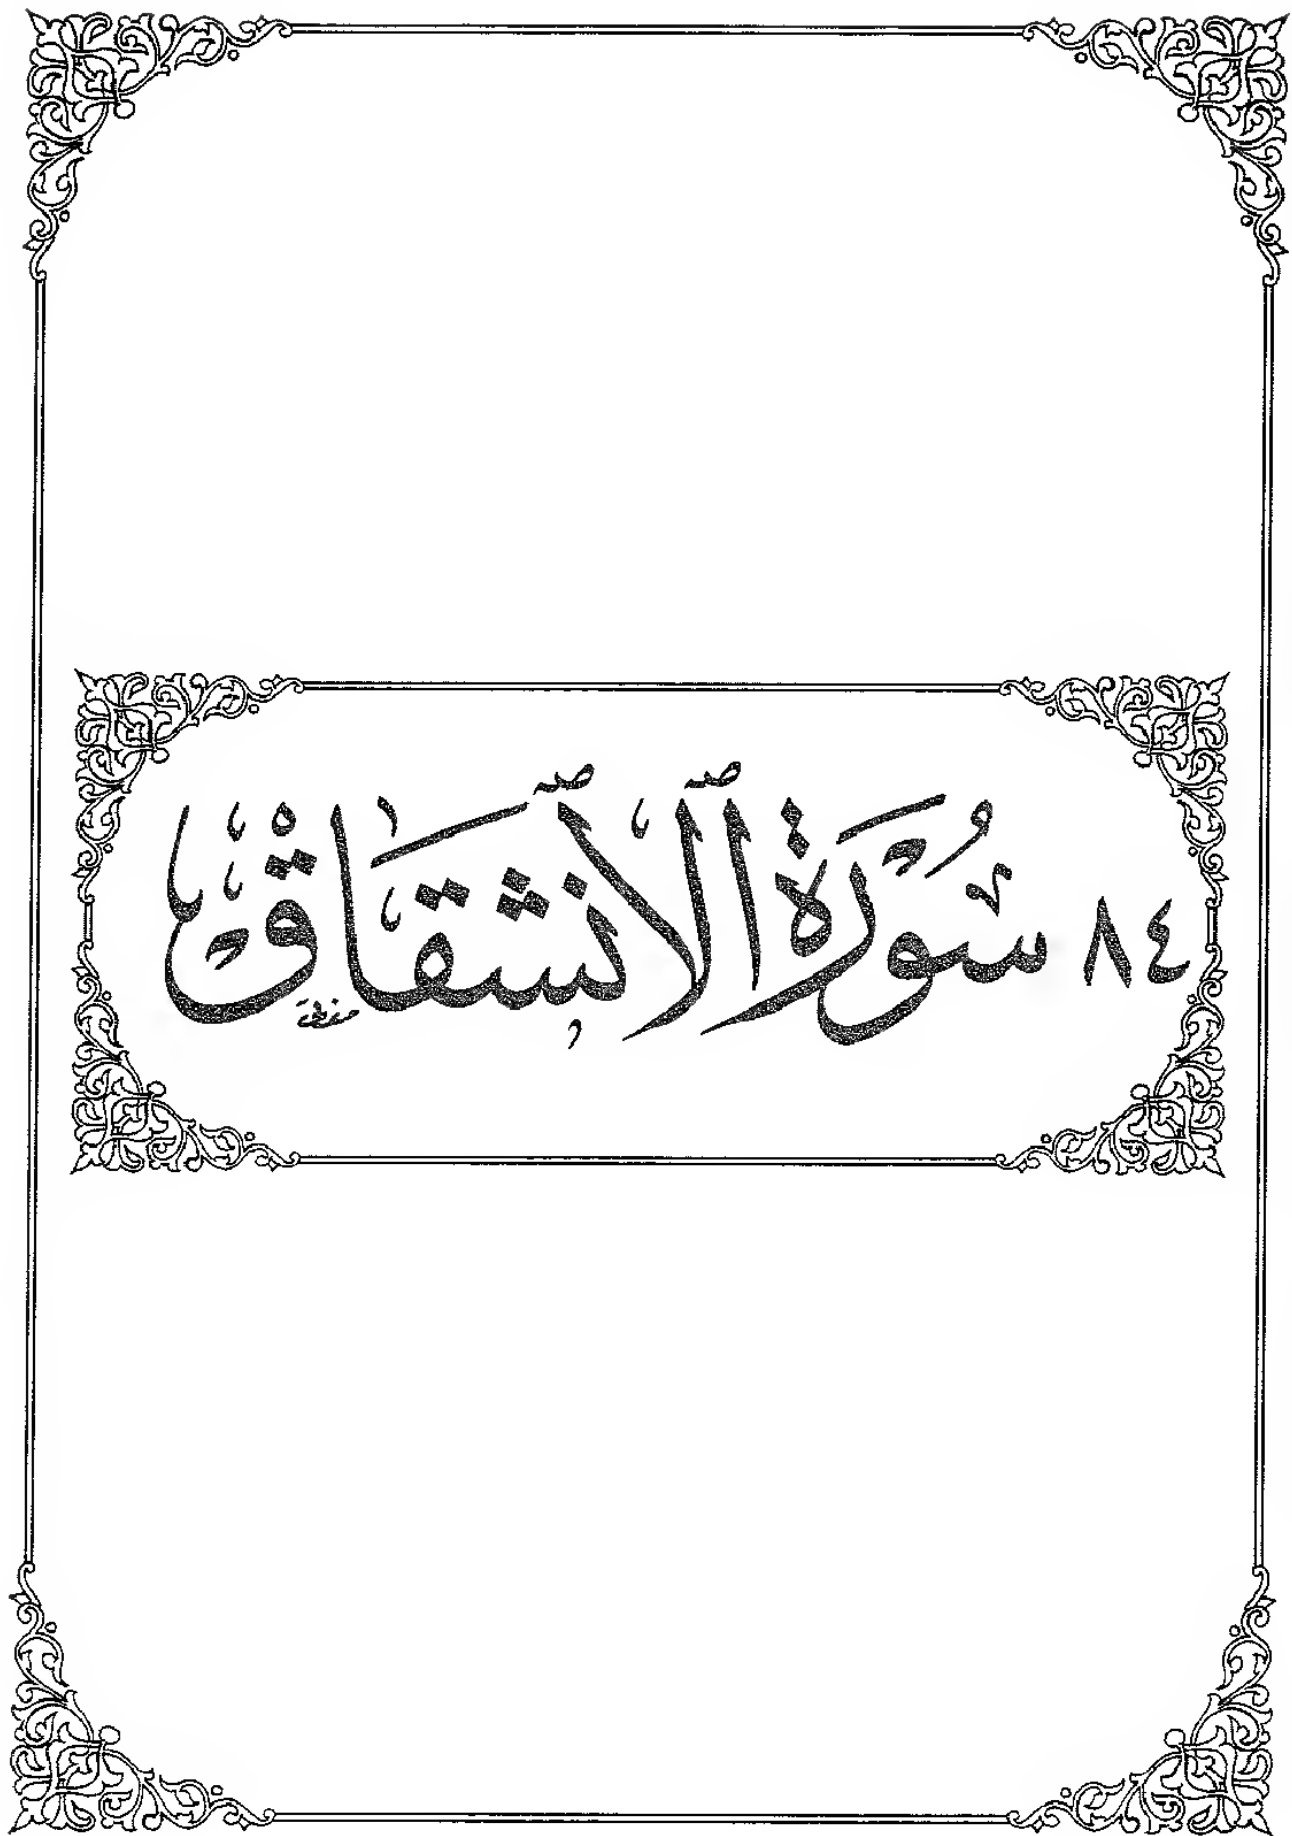 ٨٤ سُورَةُ ٱلْإِنشِقَاقِ